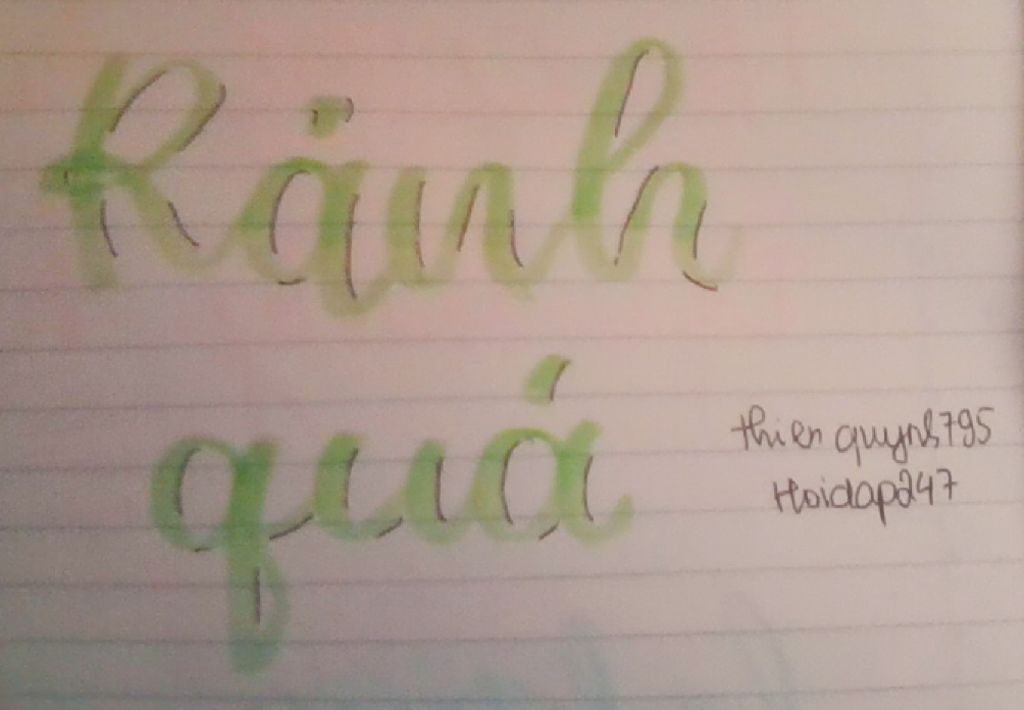 Rảnh
quá
thien quynh795
Hoidap247